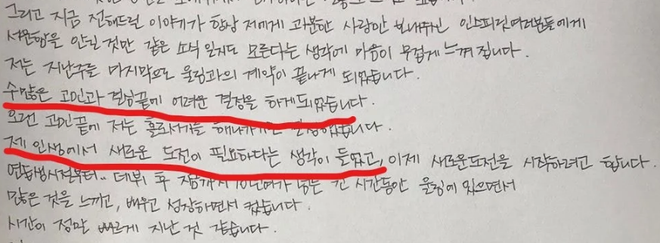 그리고 지금 전해드린 이야기가 항상 저에게 과분한 사랑만 보내주신 인스피릿 여러분들에게
실망을 안긴 것만 같은 소식일지도 모른다는 생각에 마음이 무겁게 느껴집니다.
저는 지난주를 마지막으로 울림과의 계약이 끝나게 되었습니다.
수많은 고민과 결심끝에 어려운 결정을 하게되었습니다.
오랜 고민끝에 저는 홀로서기를
제 인생에서 새로운 도전이 필요하다는 생각이 들었고, 이제 새로운도전을 시작하려고 합니다.
연습생시절부터.. 데뷔 후 지금까지 10년여가 넘는 긴 시간동안 울림에 있으면서
많은 것을 느끼고, 배우고 성장하면서 컸습니다.
시간이 정말 빠르게 지난 것 같습니다.